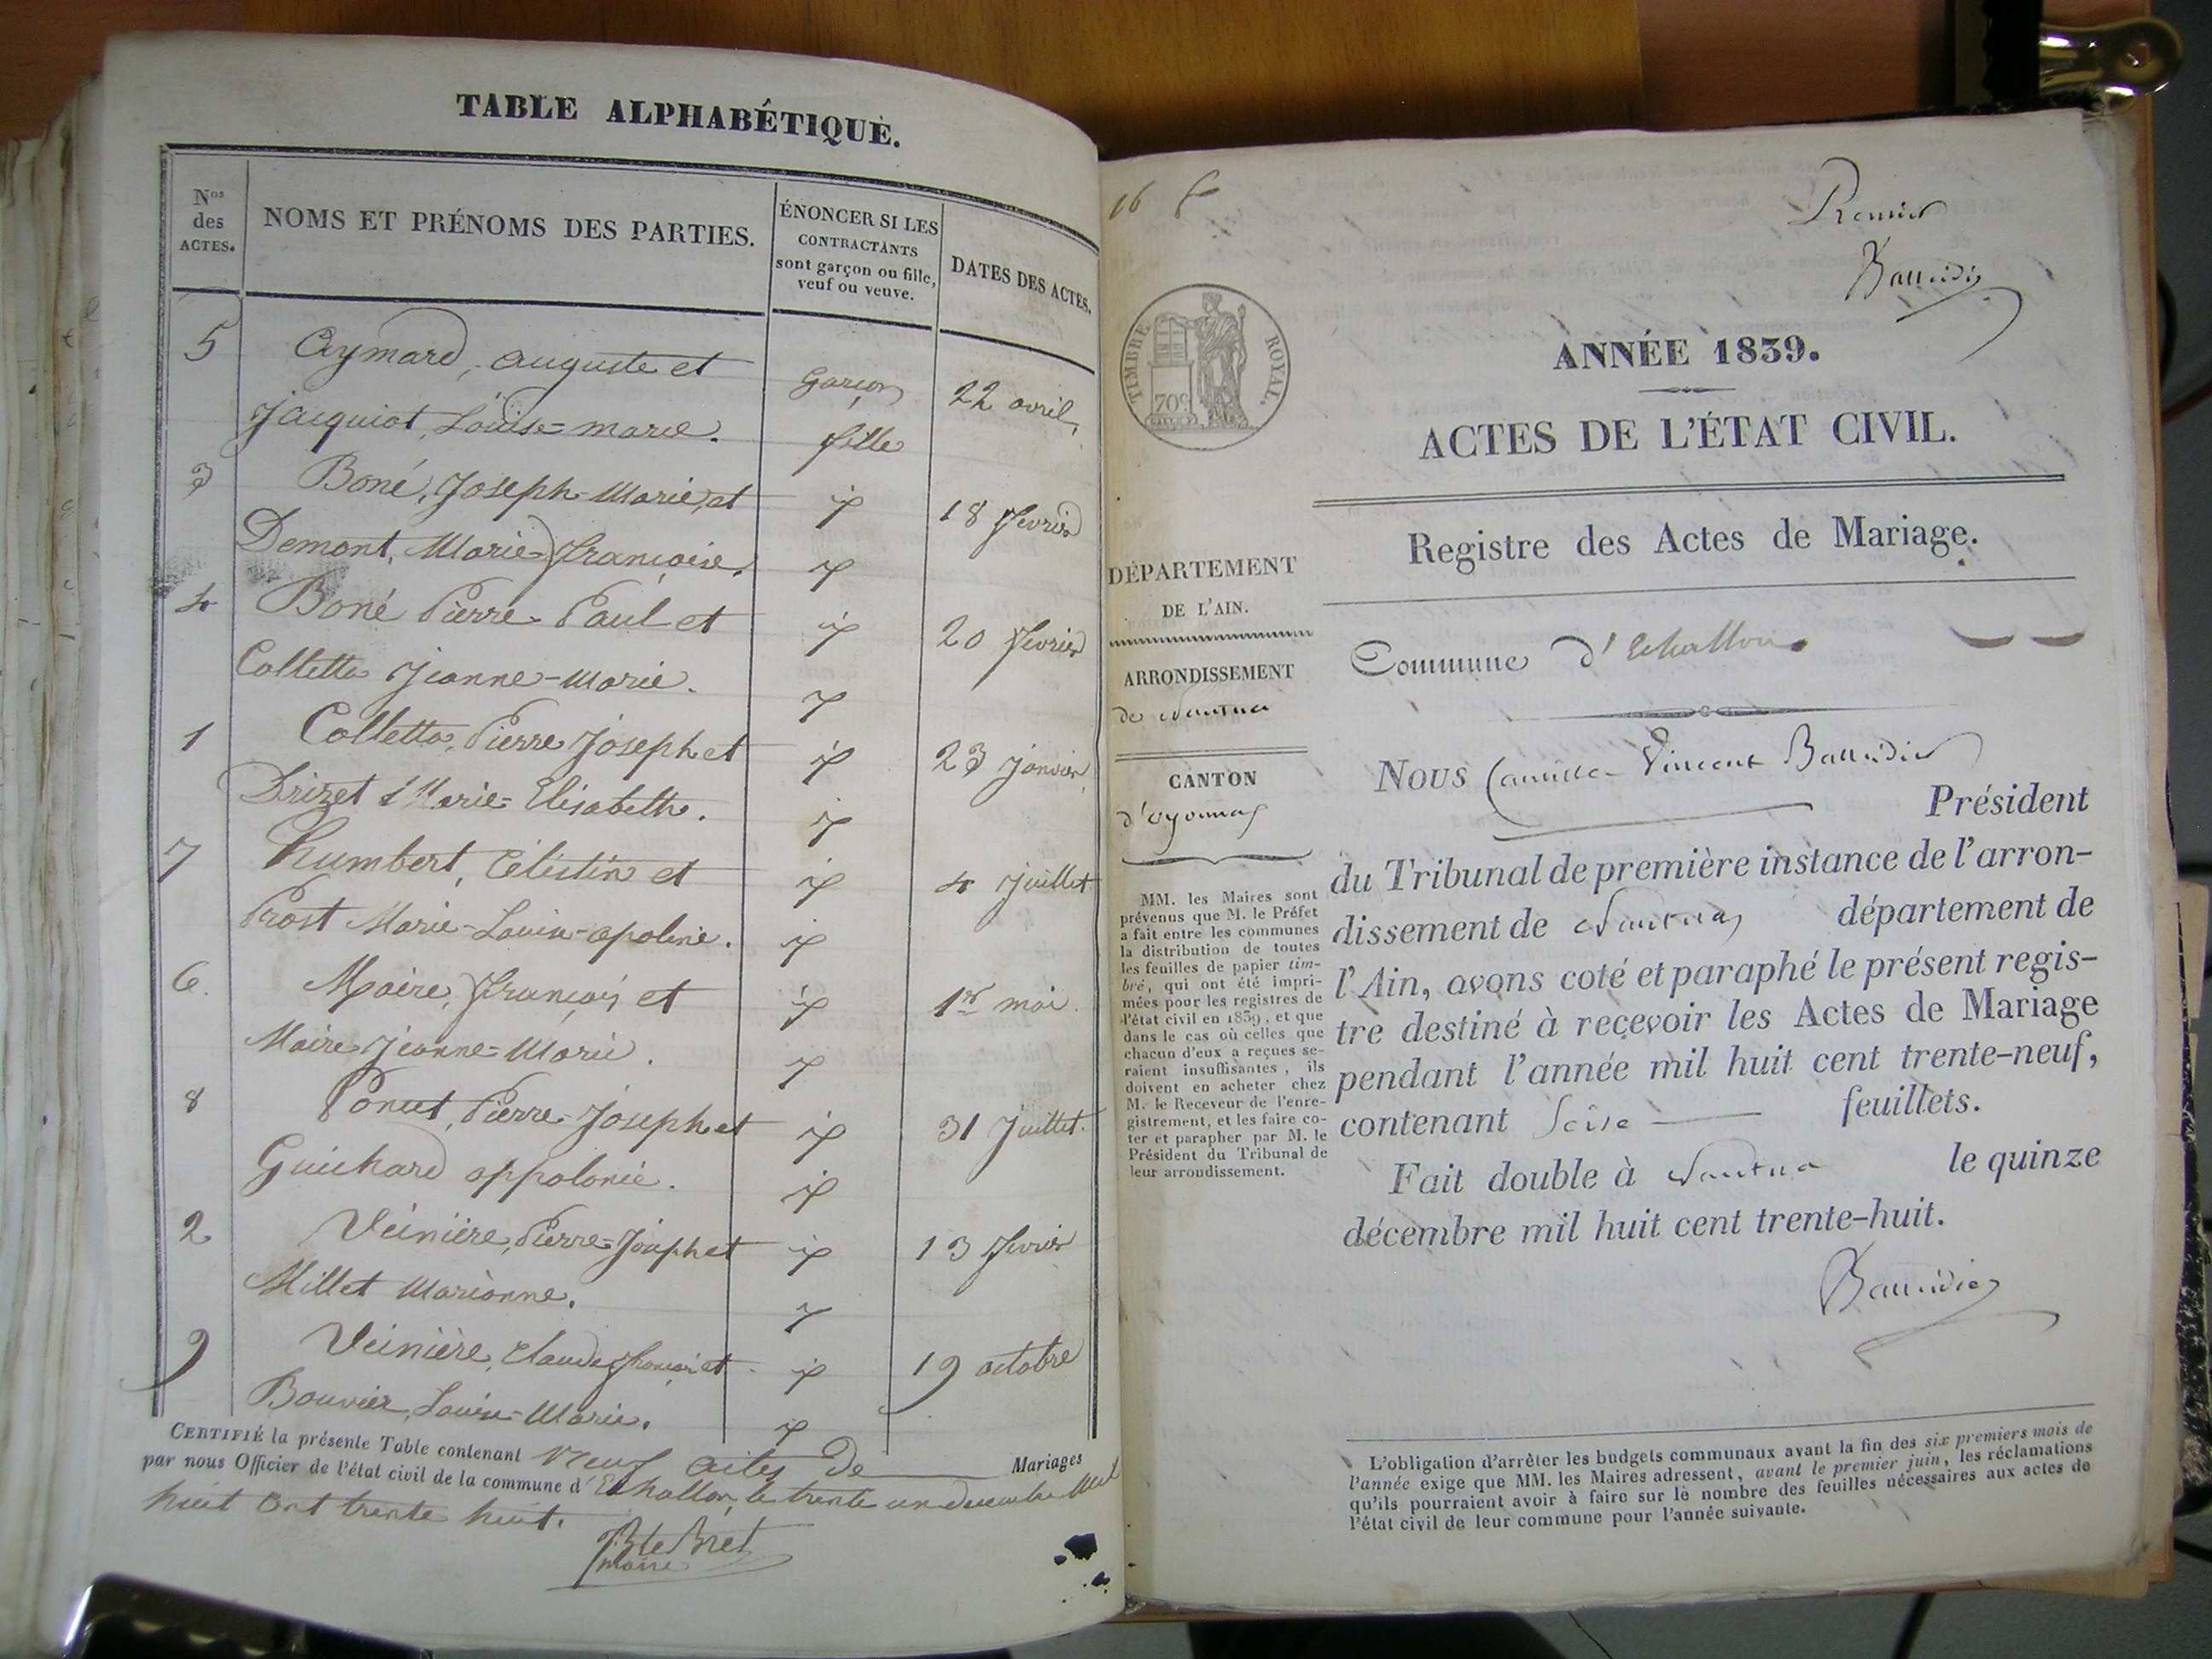 TABLE ALPHABÉTIQUE.
Nos des ACTES.
NOMS ET PRÉNOMS DES PARTIES.
ÉNONCER SI LES
CONTRACTANTS
sont garçon ou fille,
veuf ou veuve.
DATES DES ACTES.
5 Aymard, auguste et garçon 22 avril
Jacquiot, Louise=marie. fille
3 Boné, Joseph-Marie, et id 18 fevrier
Demont, Marie=françoise. id
4 Boné Pierre-Paul et id 20 fevrier
Colletta Jeanne-Marie. id
1 Colletta, Pierre Joseph et id 23 janvier
Drizet Marie=Elisabeth. id
7 humbert, Célestin et id 4 Juillet
Prost Marie-Louise-apoline. id
6. Maire, françois et id 1er mai
Maire Jeanne=Marie. id
8 Poncet, Pierre-Joseph et id 31 Juillet.
Guichard appolonie. id
2 Veinière, Pierre=Joseph et id 13 fevrier
Millet Marianne. id
9 Veinière, Claude françois et id 19 octobre
Bouvier, Louise-Marie. id
CERTIFIÉ la présente Table contenant neuf actes de Mariages
par nous Officier de l'état civil de la commune d'Echallon, le trente un decembre Mil
huit cent trente huit.
maire
16 f
Premier
Baudin
TIMBRE ROYAL.
70c
ANNÉE 1839.
ACTES DE L'ÉTAT CIVIL.
Registre des Actes de Mariage.
DÉPARTEMENT
DE L'AIN.
ARRONDISSEMENT
de Nantua
CANTON
d'oyonnax
MM. les Maires sont
prévenus que M. le Préfet
a fait entre les communes
la distribution de toutes
les feuilles de papier tim-
bré, qui ont été impri-
mées pour les registres de
l'état civil en 1839, et que
dans le cas où celles que
chacun d'eux a reçues se-
raient insuffisantes, ils
doivent en acheter chez
M. le Receveur de l'enre-
gistrement, et les faire co-
ter et parapher par M. le
Président du Tribunal de
leur arrondissement.
Commune d'Echallon
Nous Camille Vincent
Président
du Tribunal de première instance de l'arron-
dissement de Nantua département de
l'Ain, avons coté et paraphé le présent regis-
tre destiné à recevoir les Actes de Mariage
pendant l'année mil huit cent trente-neuf,
contenant Seise feuillets.
Fait double à Nantua le quinze
décembre mil huit cent trente-huit.
L'obligation d'arrêter les budgets communaux avant la fin des six premiers mois de
l'année exige que MM. les Maires adressent, avant le premier juin, les réclamations
qu'ils pourraient avoir à faire sur le nombre des feuilles nécessaires aux actes de
l'état civil de leur commune pour l'année suivante.